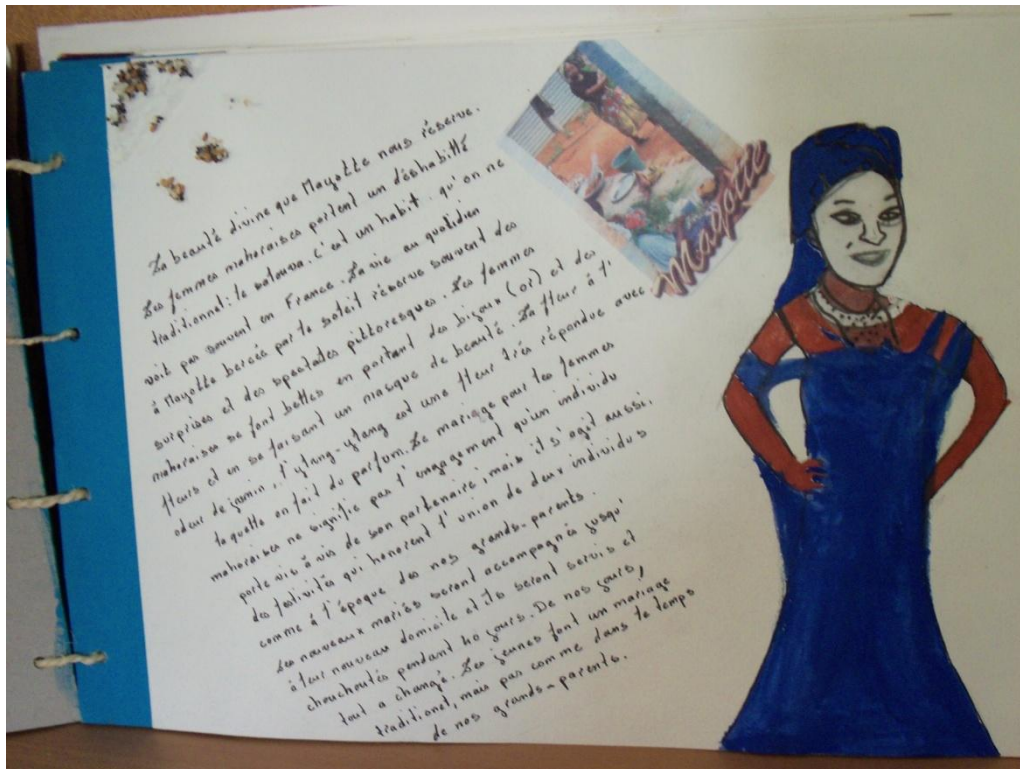 La beauté divine que Mayotte nous réserve.
Les femmes mahoraises portent un déshabillé
traditionnel: le salouva. C'est un habit qu'on ne
voit pas souvent en France. La vie au quotidien
à Mayotte bercée par le soleil réserve souvent des
surprises et des spectales pittoresques. Les femmes
mahoraises se font belles en portant des bijoux (or) et des
fleurs et en se faisant un masque de beauté. La fleur à l'
odeur de jasmin, l'ylang-ylang est une fleur très répondue avec
laquelle on fait du parfum. Le mariage pour les femmes
mahoraises ne signifie pas l'engagement qu'un individu
porte vis à vis de son partenaire, mais il s'agit aussi.
des festivités qui honorent l'union de deux individus
comme à l'époque des nos grands-parents.
Les nouveaux mariés seront accompagnés jusqu'
à leur nouveau domicile et ils seront servis et
chouchoutés pendant 40 jours. De nos jours,
tout a changé. Les jeunes font un mariage
traditionel, mais pas comme dans le temps
de nos grands-parents.
Mayotte